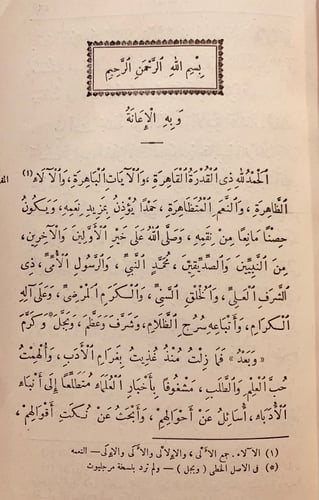 بِسْمِ اللهِ الرَّحْمٰنِ الرَّحِيمِ
وَبِهِ الْإِعَانَةُ
الْحَمْدُ لِلهِ ذِي الْقُدْرَةِ الْقَاهِرَةِ ، وَالْآيَاتِ الْبَاهِرَةِ ، وَالْآلَاءِ (١)
الظَّاهِرَةِ ، وَالنِّعَمِ الْمُتَظَاهِرَةِ ، حَمْدًا يُؤْذِنُ بِمَزِيدِ نِعَمِهِ ، وَيَكُونُ
حِصْنًا مَانِعًا مِنْ نِقَمِهِ ، وَصَلَّى اللهُ عَلَى خَيْرِ الْأَوَّلِينَ وَالْآخِرِينَ ،
مِنَ النَّبِيِّينَ وَالصِّدِّيقِينَ ، مُحَمَّدٍ النَّبِيِّ ، وَالرَّسُولِ الْأُمِّيِّ ، ذِي
الشَّرَفِ الْعَلِيِّ ، وَالْخُلُقِ السَّنِيِّ ، وَالْكَرَمِ الْمَرْضِيِّ ، وَعَلَى آلِهِ
الْكِرَامِ ، وَأَتْبَاعِهِ سُرُجِ الظَّلَامِ ، وَشَرَّفَ وَعَظَّمَ ، وَبَجَّلَ* وَكَرَّمَ
« وَبَعْدُ » فَمَا زِلْتُ مُنْذُ غُذِيتُ بِغَرَامِ الْأَدَبِ ، وَأُلْهِمْتُ
حُبَّ الْعِلْمِ وَالطَّلَبِ ، مَشْغُوفًا بِأَخْبَارِ الْعُلَمَاءِ ، مُتَطَلِّعًا إِلَى أَنْبَاءِ
الْأُدَبَاءِ ، أُسَائِلُ عَنْ أَحْوَالِهِمْ ، وَأَبْحَثُ عَنْ نُكَتِ أَقْوَالِهِمْ ،
(١) الآلاء . جمع الألى ، والألو والألى والألى والإلى — النعمه
(*) فى الاصل الخطى ( وبجل ) — ولم ترد بنسخة مرجليوث